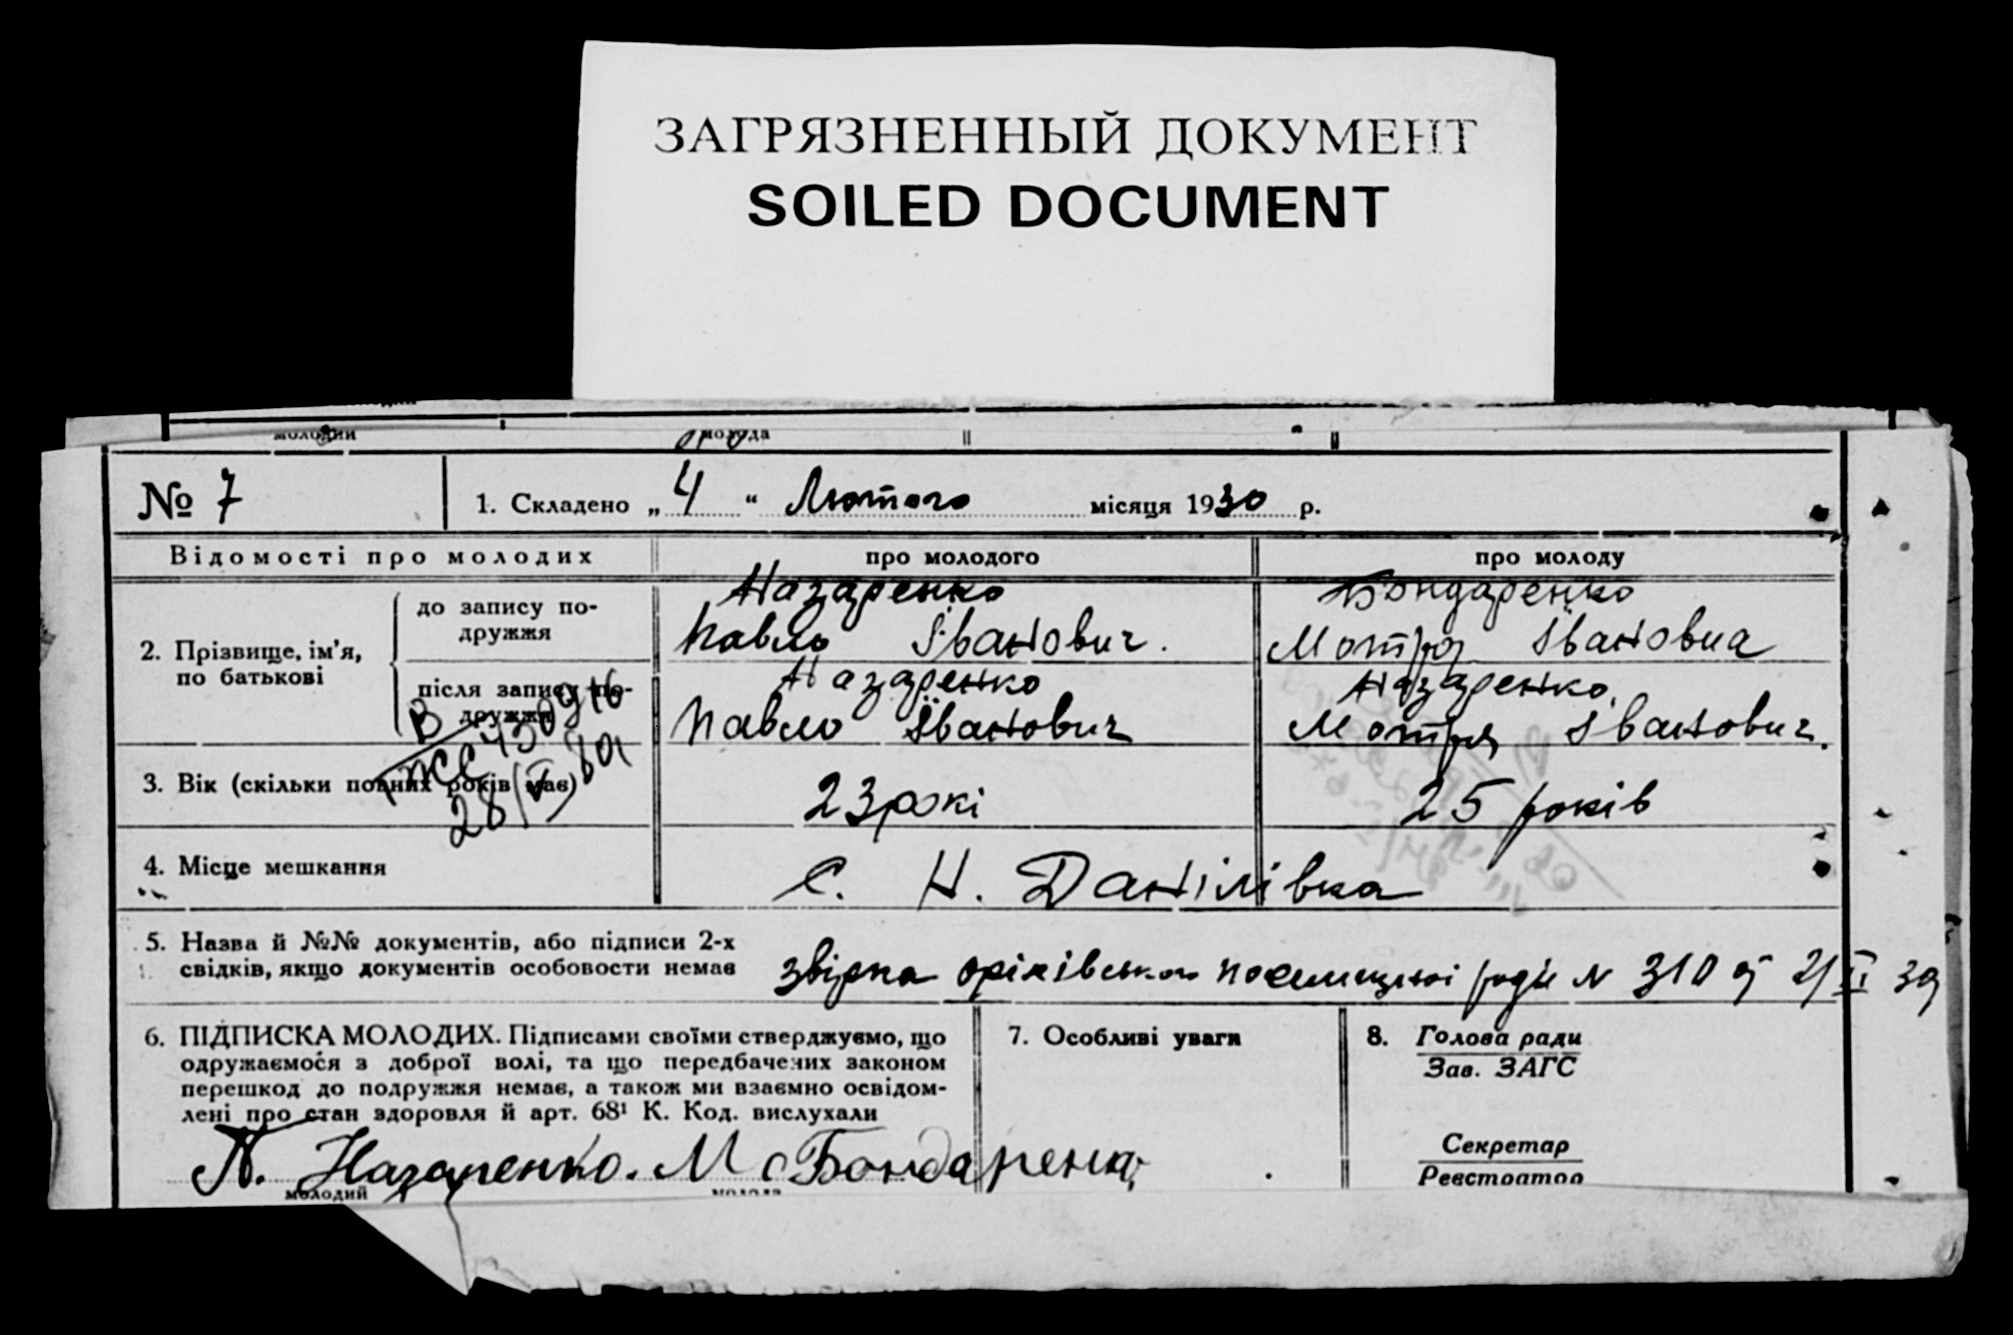 ЗАГРЯЗНЕННЫЙ ДОКУМЕНТ
SOILED DOCUMENT
молодий молода
№ 7 1. Складено „ 4 “ Лютого місяця 1930 р.
Відомості про молодих про молодого про молоду
2. Прізвище, ім’я, по батькові
до запису по-
дружжя
Назаренко
Павло Іванович.
Бондаренко
Мотря Івановна
після запису по-
дружжя
Назаренко
Павло Іванович
Назаренко
Мотря Іванович.
3. Вік (скільки повних років має) 23 рокі 25 років
4. Місце мешкання с. Н. Данілівка
5. Назва й №№ документів, або підписи 2-х
свідків, якщо документів особовости немає
оріхівського N 310 II
6. ПІДПИСКА МОЛОДИХ. Підписами своїми стверджуємо, що
одружаємося з доброї волі, та що передбачених законом
перешкод до подружжя немає, а також ми взаємно освідом-
лені про стан здоровля й арт. 68¹ К. Код. вислухали
П. Назаренко. М Бондаренк
молодий молода
7. Особливі уваги
8. Голова ради
Зав. ЗАГС
Секретар
Реєстратор